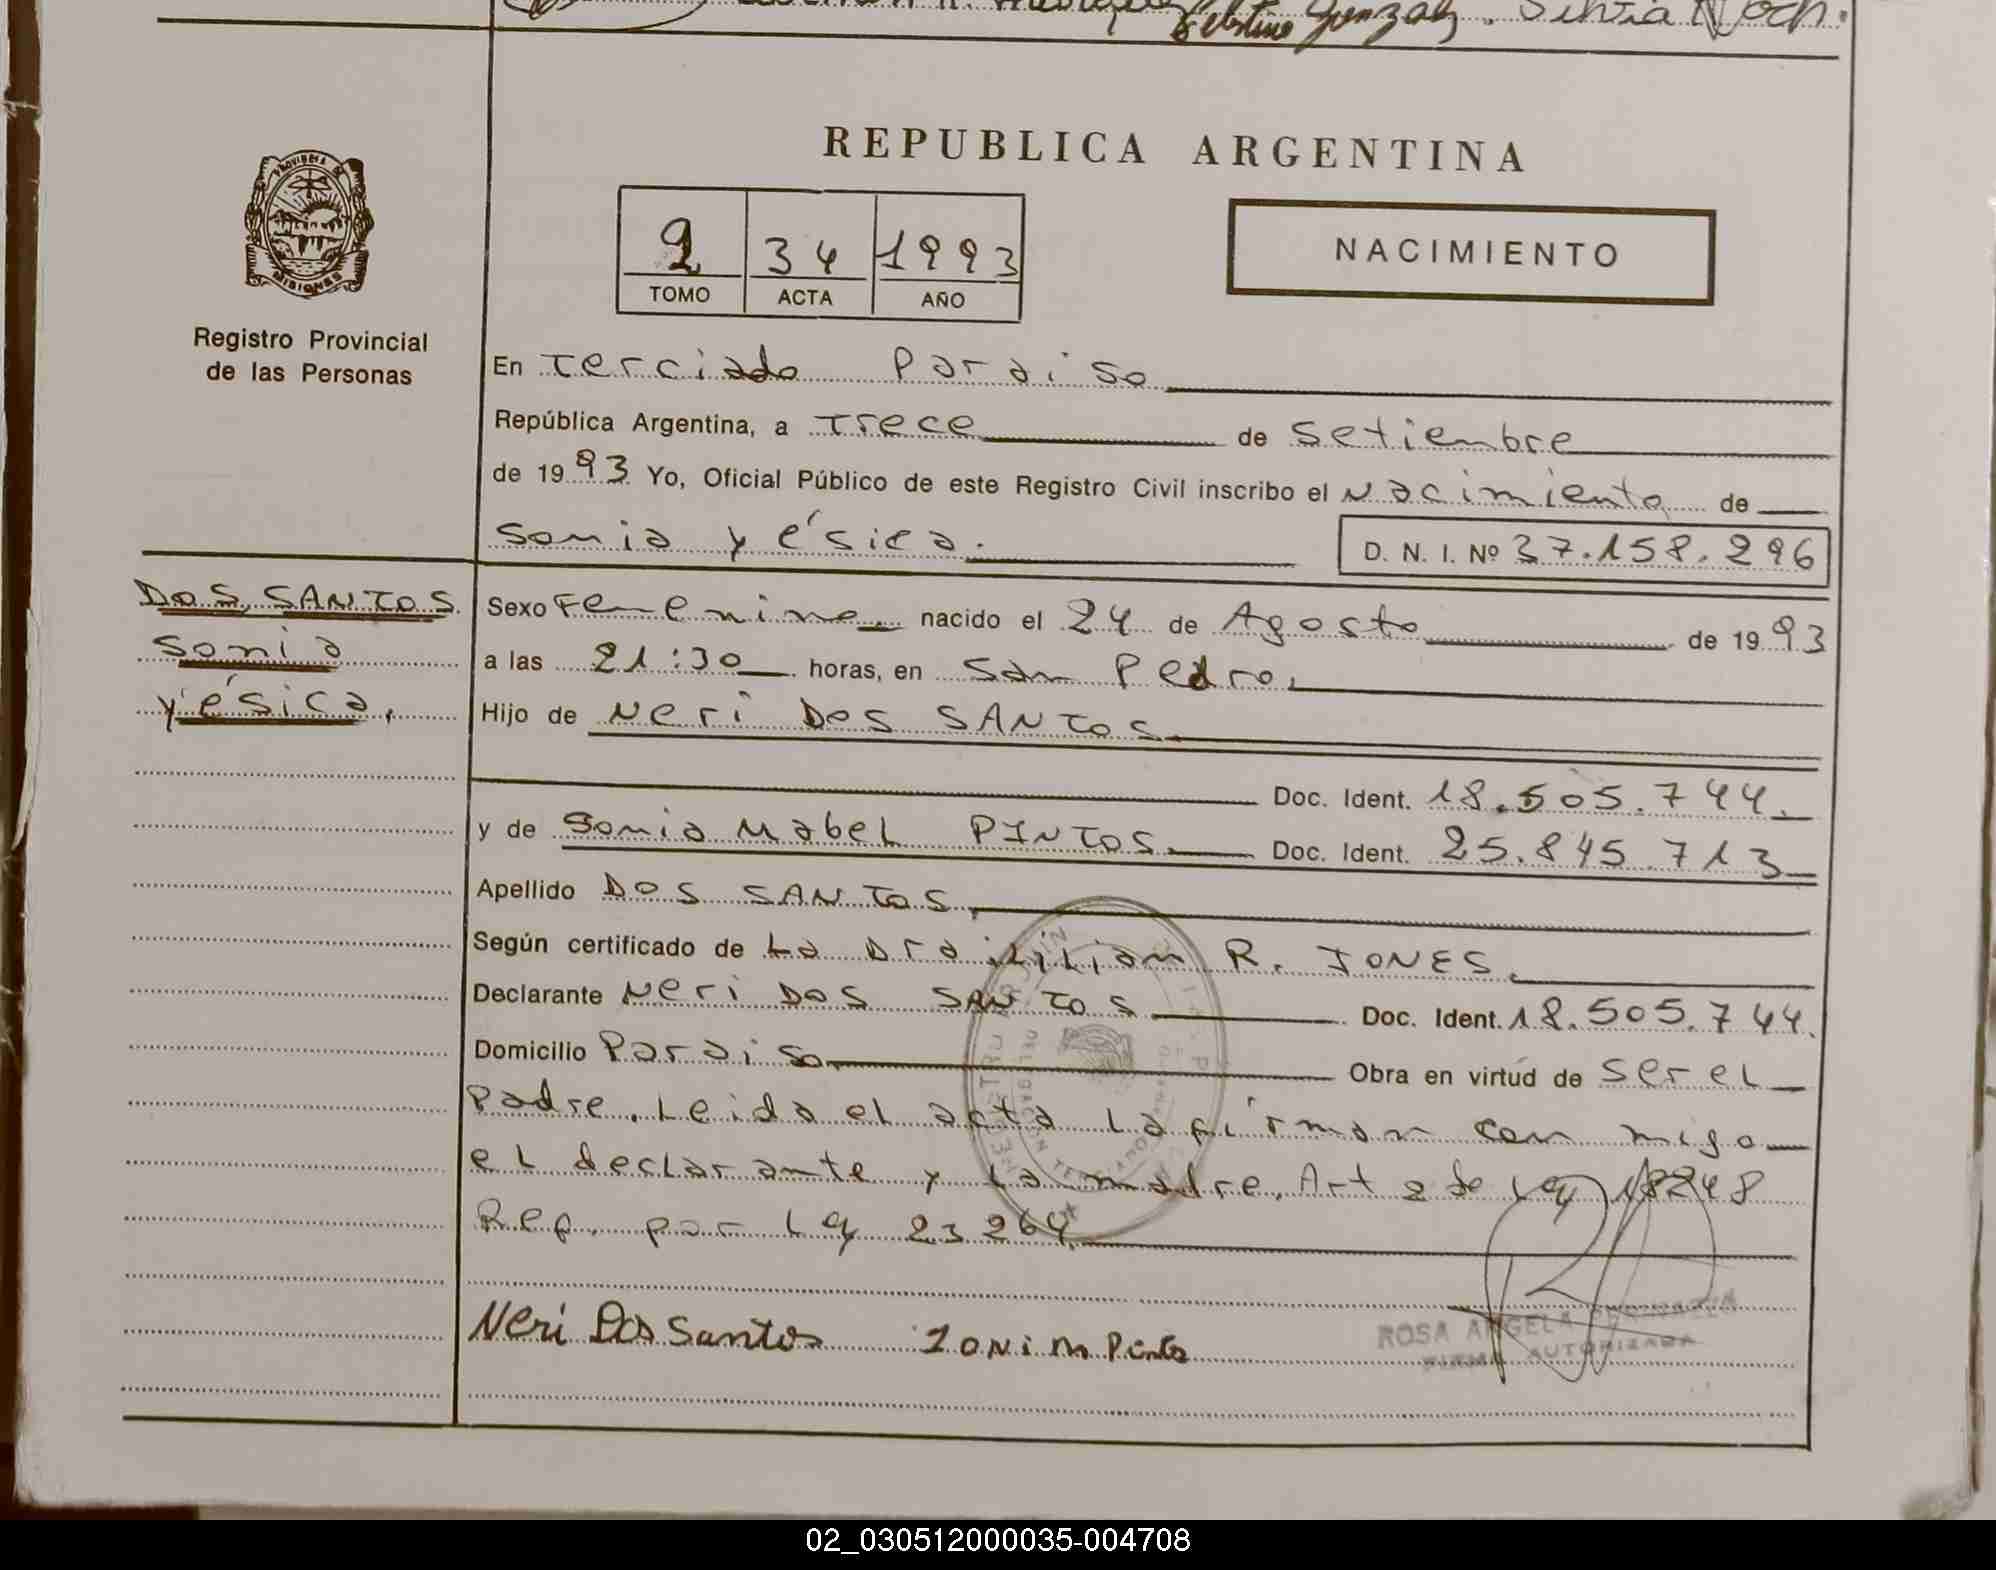 Celestino Gonzalez. Silvia Noch.
REPUBLICA ARGENTINA
PROVINCIA DE
MISIONES
Registro Provincial
de las Personas
2 34 1993
TOMO ACTA AÑO
NACIMIENTO
En Terciado Paraiso
República Argentina, a Trece de Setiembre
de 1993 Yo, Oficial Público de este Registro Civil inscribo el Nacimiento de
Sonia Yésica.
D. N. I. Nº 37.158.296
DOS SANTOS
Sonia
Yésica,
Sexo Femenino nacido el 24 de Agosto de 1993
a las 21:30 horas, en San Pedro,
Hijo de Neri DOS SANTOS
Doc. Ident. 18.505.744.
y de Sonia Mabel PINTOS Doc. Ident. 25.845.713
Apellido DOS SANTOS,
Según certificado de La Dra. Lilian R. JONES.
Declarante Neri DOS SANTOS Doc. Ident. 18.505.744.
Domicilio Paraiso Obra en virtúd de ser el
Padre. Leida el acta la firman con migo
el declarante y la madre. Art 2 de Ley 18248
Ref. por Ley 23264
Neri Dos Santos
ROSA ANGELA
FIRMA AUTORIZADA
02_030512000035-004708